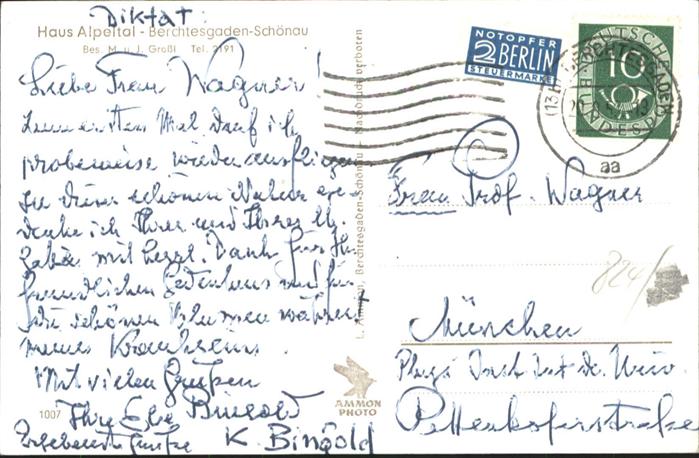 Diktat:
Haus Alpeltal - Berchtesgaden-Schönau
Bes. M. u. J. Graßl Tel. 2191
Liebe Frau Wagner!
Zum ersten Mal darf ich
probeweise wieder ausfliegen
In dieser schönen Natur ge-
denke ich Ihrer und Ihres
mit herzl. Dank für Ihr
freundliches Gedenken und für
die schönen Blumen während
meines Krankseins.
Mit vielen Grüßen
Ihre Bingold
Ergebenste Grüße K. Bingold
1007
AMMON
PHOTO
L. Ammon, Berchtesgaden-Schönau - Nachdruck verboten
NOTOPFER
2 BERLIN
STEUERMARKE
DEUTSCHE
10
BUNDESPOST
BERCHTESGADEN
aa
Frau Prof. Wagner
824/
München
Physi Institut d. Univ.
Pettenkoferstraße